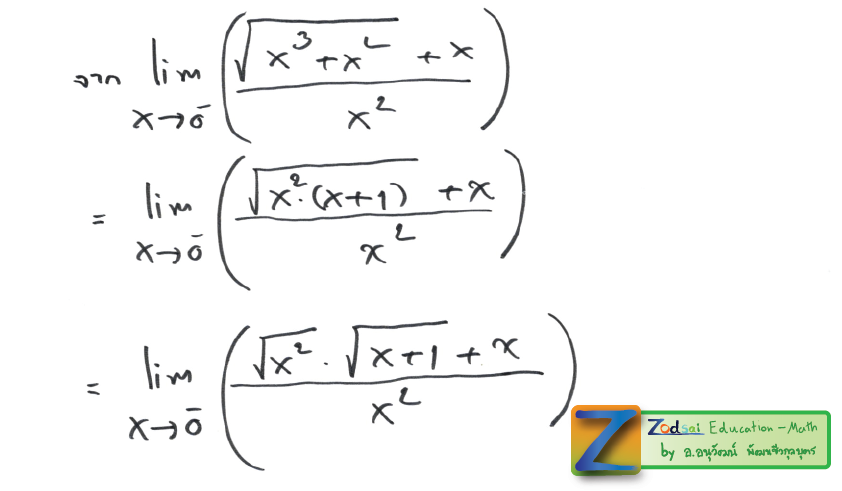 จาก lim x→0⁻ ( (√(x³+x²) + x) / x² )
= lim x→0⁻ ( (√(x²·(x+1)) + x) / x² )
= lim x→0⁻ ( (√x² · √(x+1) + x) / x² )
Z Zodsai Education - Math
by อ.อนุวัฒน์ พัฒนชีวกุลบุตร